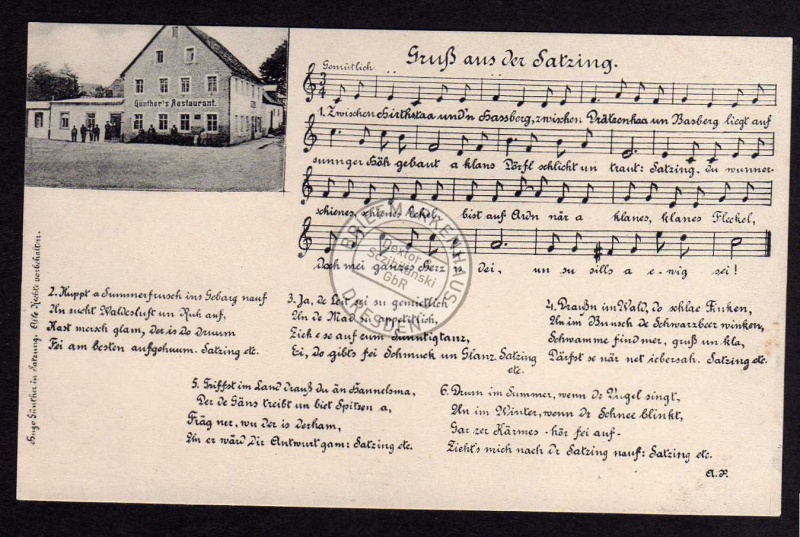 Gruß aus der Satzing.
Günther's Restaurant.
Gemütlich
3
4
1. Zwischen Hirtstaa und'n Hassberg, zwischen Prätzenhaa un Basberg liegt auf
sunniger Höh gebaut a klans Dörfl schlicht un traut: Satzing, du wunner-
schienes, schienes Eckel, bist auf Ardn när a klanes, klanes Fleckel,
Doch mei ganzes Herz is dei, un su sills a e-wig sei!
BRIEFMARKENHAUS
DRESDEN
GbR
2. Kuppt a Summerfrusch ins Gebarg nauf
Un sucht Waldesluft un Ruh auf,
Hast mersch glam, der is do Druum
Fei am besten aufgehuum. Satzing etc.
3. Ja, de Leit sei su gemietlich
Un de Mad su appetitlich,
Zieh e se auf zum Sunntigtanz,
Ei, do gibts fei Schmuck un Glanz. Satzing
etc.
4. Draußn im Wald, do schlae Finken,
Un im Busch de Schwarzbeer winken,
Schwamme find mer, gruß un kla,
Därfst se när net iebersah. Satzing etc.
5. Triffst im Land drauß du än Hannelsma,
Der de Gäns treibt un biet Spitzen a,
Fräg ner, wu der is derham,
Un er wärd dir Antwurt gam: Satzing etc.
6. Drum im Summer, wenn dr Vugel singt,
Un im Winter, wenn dr Schnee blinkt,
Gar zer Kärmes - hör fei auf -
Zieht's mich nach dr Satzing nauf: Satzing etc.
Hugo Günther in Satzung. Alle Rechte vorbehalten.